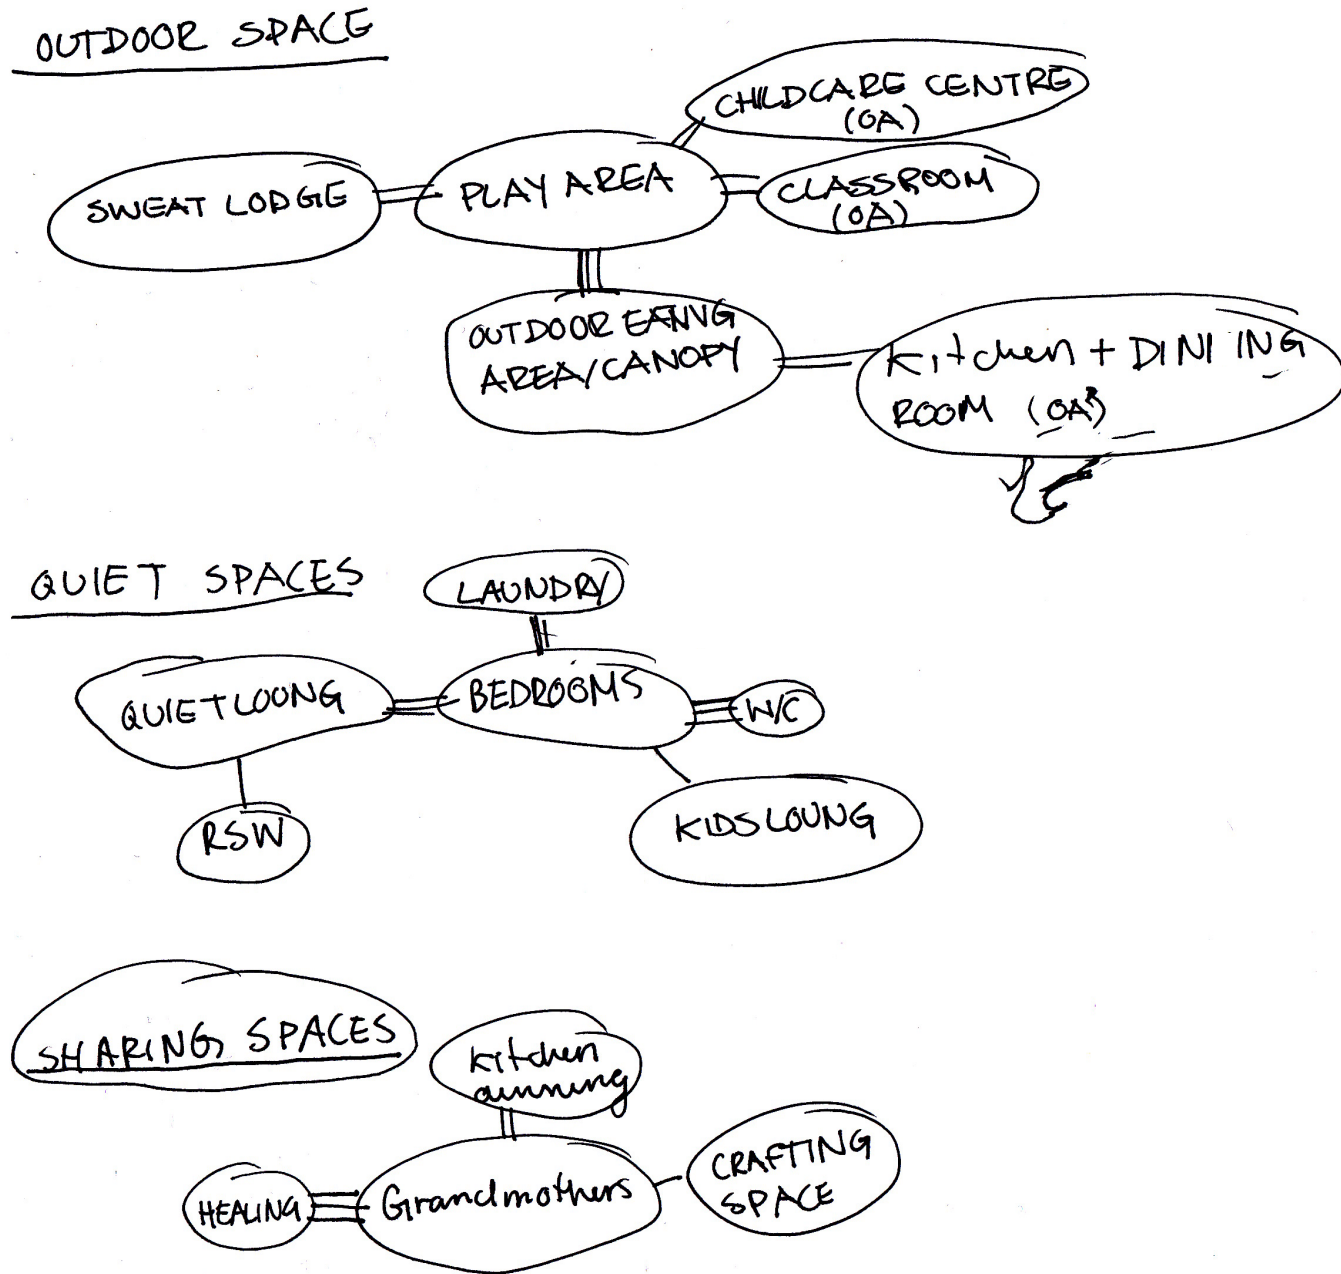 OUTDOOR SPACE
CHILDCARE CENTRE
(OA)
SWEAT LODGE
PLAY AREA
CLASSROOM
(OA)
OUTDOOR EANVG
AREA/CANOPY
Kitchen + DINI ING
ROOM (OA)
QUIET SPACES
LAUNDRY
QUIET LOUNG
BEDROOMS
W/C
RSW
KIDS LOUNG
SHARING SPACES
Kitchen
dinning
HEALING
Grandmothers
CRAFTING
SPACE